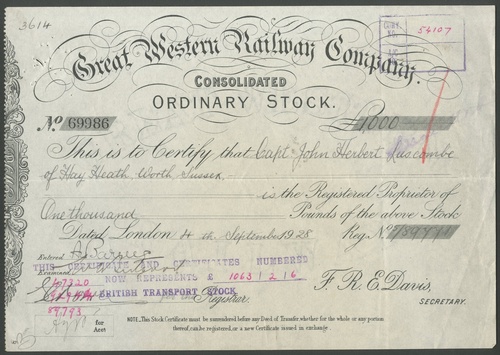 3614
CERT. NO. 54107
Great Western Railway Company.
CONSOLIDATED
ORDINARY STOCK.
No 69986
£1000
This is to Certify that Capt John Herbert Luscombe
of Hay Heath, Worth Sussex
is the Registered Proprietor of
One thousand Pounds of the above Stock
Dated London 4th September 1928 Reg. No
Entered
THIS CERTIFICATE AND CERTIFICATES NUMBERED
Examined
67320 NOW REPRESENTS £ 1063 | 2 | 6
BRITISH TRANSPORT STOCK
Registrar.
F. R. E. Davis,
SECRETARY.
89793
for Acct
NOTE, This Stock Certificate must be surrendered before any Deed of Transfer, whether for the whole or any portion
thereof, can be registered, or a new Certificate issued in exchange.